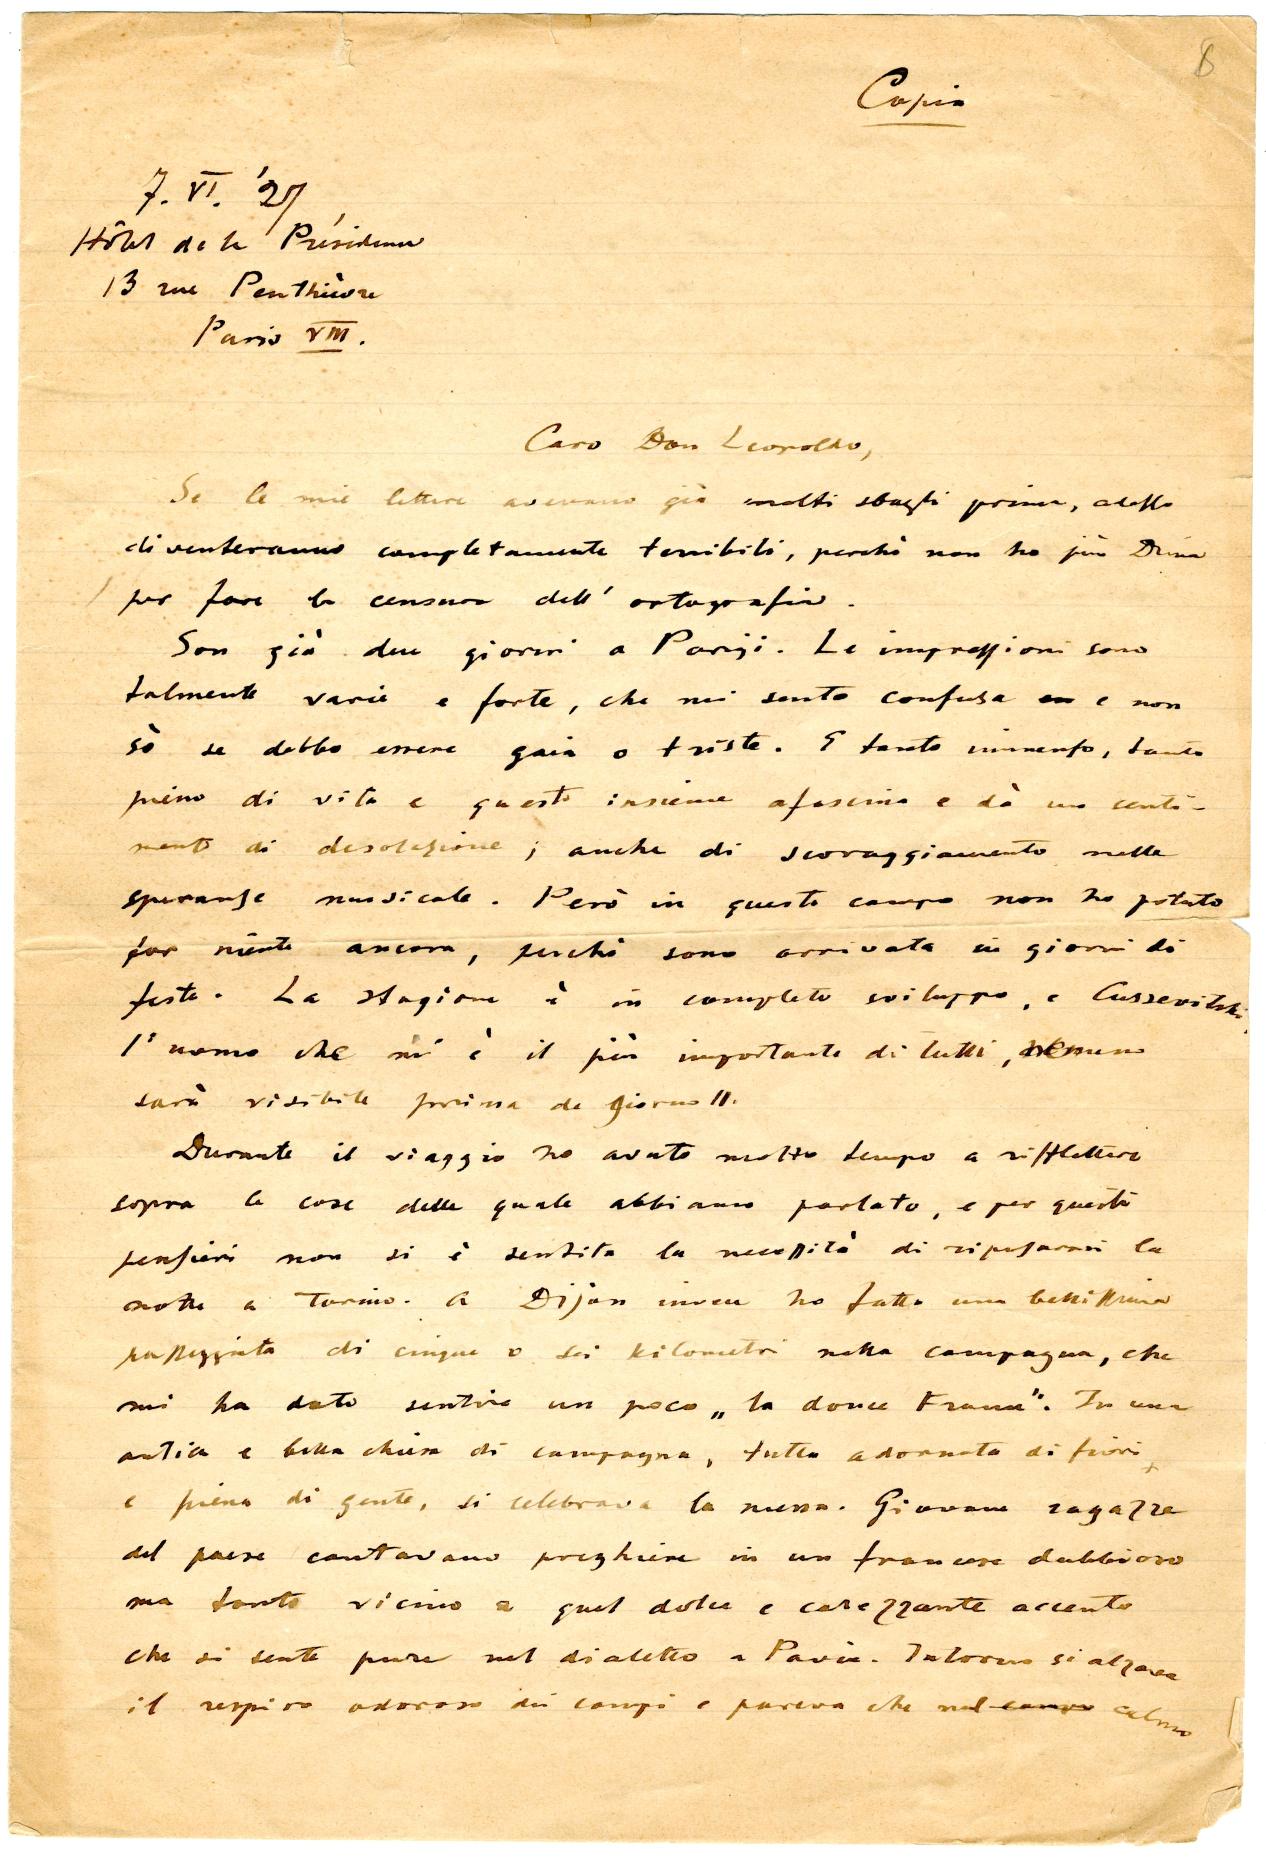 8
Copia
7. VI. '27
Hôtel de la Présidence
13 rue Penthièvre
Paris VIII.
Caro Don Leopoldo,
Se le mie lettere avevano già molti sbagli prima, adesso
diventeranno completamente terribili, perchè non ho più Drina
per fare la censura dell' ortografia.
Son già due giorni a Parigi. Le impressioni sono
talmente varie e forte, che mi sento confusa e non
sò se debbo essere gaia o triste. E tanto immenso, tanto
pieno di vita e questo insieme afascina e dà un senti-
mento di desolazione; anche di scoraggiamento nelle
speranze musicale. Però in questo campo non ho potuto
far niente ancora, perchè sono arrivata in giorni di
festa. La stagione è in completo sviluppo, e Cussevitski,
l'uomo che mi è il più importante di tutti, nemeno
sarà visibile prima de giorno 11.
Durante il viaggio ho avuto molto tempo a rifflettere
sopra le cose delle quale abbiamo parlato, e per questi
pensieri non si è sentita la necessità di riposarsi la
notte a Torino. A Dijon invece ho fatto una bellissima
passeggiata di cinque o sei kilometri nella campagna, che
mi ha dato sentire un poco „la douce France". In una
antica e bella chiesa di campagna, tutta adornata di fiori
e piena di gente, si celebrava la messa. Giovane ragazze
del paese cantavano preghiere in un francese dubbioso
ma tanto vicino a quel dolce e carezzante accento
che si sente pure nel dialetto a Pavia. Intorno si alzava
il respiro odoroso dei campi e pareva che nel campo calmo